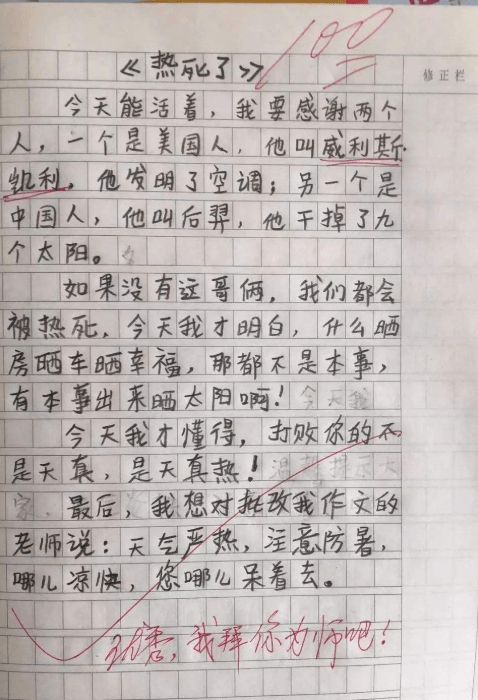 100
《热死了》
修正栏
今天能活着，我要感谢两个
人，一个是美国人，他叫威利斯·
凯利，他发明了空调；另一个是
中国人，他叫后羿，他干掉了九
个太阳。
如果没有这哥俩，我们都会
被热死，今天我才明白，什么晒
房晒车晒幸福，那都不是本事，
有本事出来晒太阳啊！
今天我才懂得，打败你的不
是天真，是天真热！
最后，我想对批改我作文的
老师说：天气严热，注意防暑，
哪儿凉快，您哪儿呆着去。
优秀，我拜你为师吧！